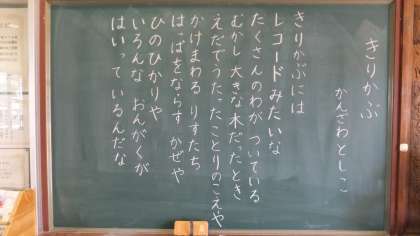 きりかぶ
かんざわとしこ
きりかぶには
レコードみたいな
たくさんのわが ついている
むかし 大きな木だったとき
えだでうたった ことりのこえや
かけまわる りすたち
はっぱをならす かぜや
ひのひかりや
いろんな おんがくが
はいって いるんだな